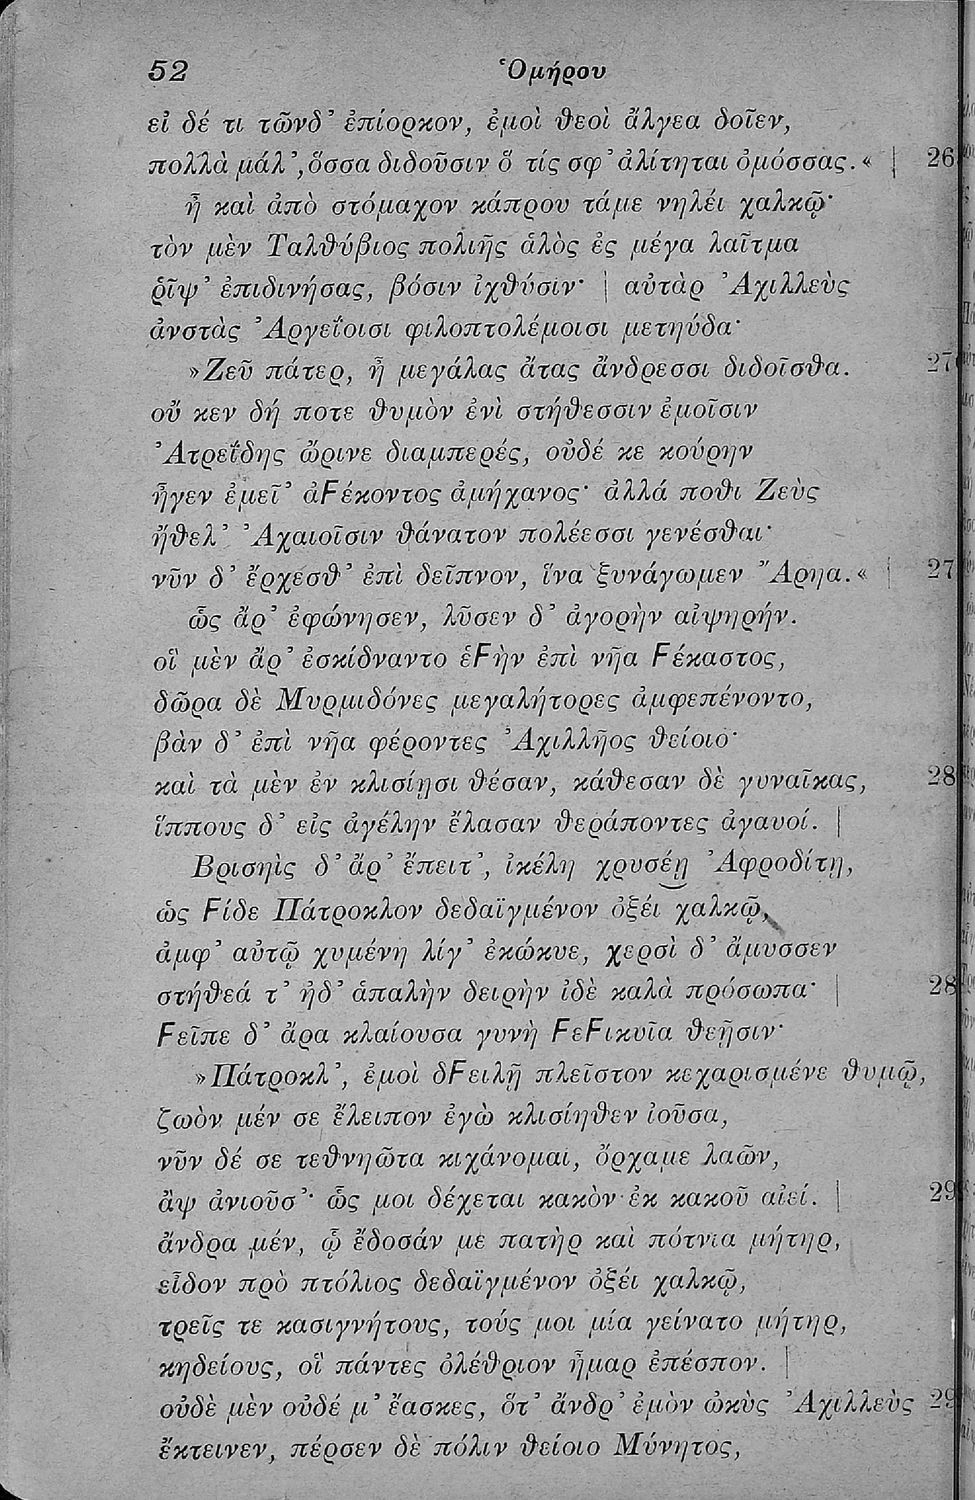 52 Ὁμήρου
εἰ δέ τι τῶνδ᾽ ἐπίορκον, ἐμοὶ θεοὶ ἄλγεα δοῖεν,
πολλὰ μάλ᾽, ὅσσα διδοῦσιν ὅ τίς σφ᾽ ἀλίτηται ὀμόσσας.« | 26
ἦ καὶ ἀπὸ στόμαχον κάπρου τάμε νηλέι χαλκῷ·
τὸν μὲν Ταλθύβιος πολιῆς ἁλὸς ἐς μέγα λαῖτμα
ῥῖψ᾽ ἐπιδινήσας, βόσιν ἰχθύσιν· | αὐτὰρ Ἀχιλλεὺς
ἀνστὰς Ἀργείοισι φιλοπτολέμοισι μετηύδα·
»Ζεῦ πάτερ, ἦ μεγάλας ἄτας ἄνδρεσσι διδοῖσθα. 27
οὔ κεν δή ποτε θυμὸν ἐνὶ στήθεσσιν ἐμοῖσιν
Ἀτρεΐδης ὤρινε διαμπερές, οὐδέ κε κούρην
ἦγεν ἐμεῖ᾽ ἀϝέκοντος ἀμήχανος· ἀλλά ποθι Ζεὺς
ἤθελ᾽ Ἀχαιοῖσιν θάνατον πολέεσσι γενέσθαι·
νῦν δ᾽ ἔρχεσθ᾽ ἐπὶ δεῖπνον, ἵνα ξυνάγωμεν Ἄρηα.« | 27
ὣς ἄρ᾽ ἐφώνησεν, λῦσεν δ᾽ ἀγορὴν αἰψηρήν.
οἳ μὲν ἄρ᾽ ἐσκίδναντο ἑϝὴν ἐπὶ νῆα ϝέκαστος,
δῶρα δὲ Μυρμιδόνες μεγαλήτορες ἀμφεπένοντο,
βὰν δ᾽ ἐπὶ νῆα φέροντες Ἀχιλλῆος θείοιο·
καὶ τὰ μὲν ἐν κλισίῃσι θέσαν, κάθεσαν δὲ γυναῖκας, 28
ἵππους δ᾽ εἰς ἀγέλην ἔλασαν θεράποντες ἀγαυοί. |
Βρισηὶς δ᾽ ἄρ᾽ ἔπειτ᾽, ἰκέλη χρυσέῃ Ἀφροδίτῃ,
ὡς ϝίδε Πάτροκλον δεδαϊγμένον ὀξέι χαλκῷ,
ἀμφ᾽ αὐτῷ χυμένη λίγ᾽ ἐκώκυε, χερσὶ δ᾽ ἄμυσσεν
στήθεά τ᾽ ἠδ᾽ ἁπαλὴν δειρὴν ἰδὲ καλὰ πρόσωπα· | 28
ϝεῖπε δ᾽ ἄρα κλαίουσα γυνὴ ϝεϝικυῖα θεῇσιν·
»Πάτροκλ᾽, ἐμοὶ δϝειλῇ πλεῖστον κεχαρισμένε θυμῷ,
ζωὸν μέν σε ἔλειπον ἐγὼ κλισίηθεν ἰοῦσα,
νῦν δέ σε τεθνηῶτα κιχάνομαι, ὄρχαμε λαῶν,
ἂψ ἀνιοῦσ᾽· ὥς μοι δέχεται κακὸν ἐκ κακοῦ αἰεί. | 29
ἄνδρα μέν, ᾧ ἔδοσάν με πατὴρ καὶ πότνια μήτηρ,
εἶδον πρὸ πτόλιος δεδαϊγμένον ὀξέι χαλκῷ,
τρεῖς τε κασιγνήτους, τούς μοι μία γείνατο μήτηρ,
κηδείους, οἳ πάντες ὀλέθριον ἦμαρ ἐπέσπον. |
οὐδὲ μὲν οὐδέ μ᾽ ἔασκες, ὅτ᾽ ἄνδρ᾽ ἐμὸν ὠκὺς Ἀχιλλεὺς 29
ἔκτεινεν, πέρσεν δὲ πόλιν θείοιο Μύνητος,